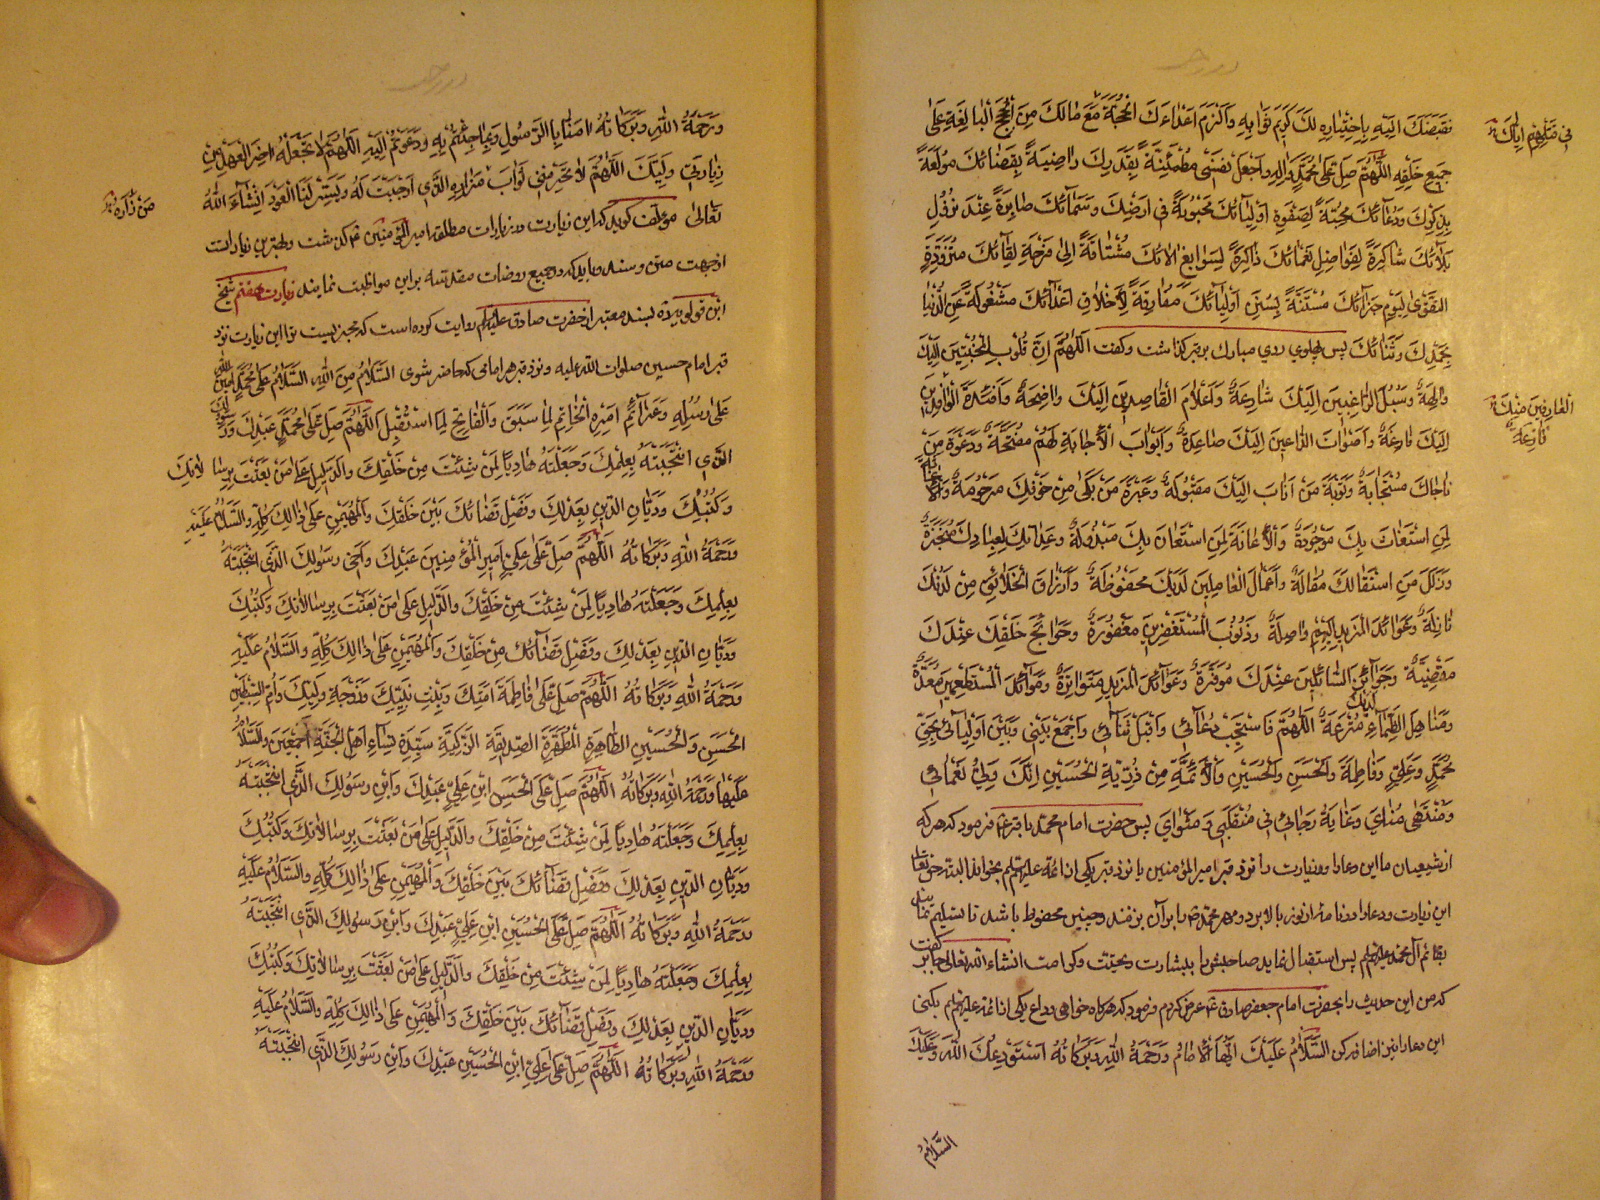 فقبضك اليه باختياره لك كريم ثوابه والزم اعداءك الحجة مع مالك من الحجج البالغة على
في قتلهم اياك
جميع خلقه اللهم صل على محمد واله واجعل نفسي مطمئنة بقدرك راضية بقضائك مولعة
بذكرك ودعائك محبة لصفوة اوليائك محبوبة في ارضك وسمائك صابرة عند نزول
بلائك شاكرة لفواضل نعمائك ذاكرة لسوابغ الائك مشتاقة الى فرحة لقائك متزودة
التقوى ليوم جزائك مستنة بسنن اوليائك مفارقة لاخلاق اعدائك مشغولة عن الدنيا
بحمدك وثنائك پس پهلوي روي مبارك برقبر كذاشت وكفت اللهم ان قلوب المخبتين اليك
والهة وسبل الراغبين اليك شارعة واعلام القاصدين اليك واضحة وافئدة الوافدين
العارفين منك فازعة
اليك فازعة واصوات الداعين اليك صاعدة وابواب الاجابة لهم مفتحة ودعوة من
ناجاك مستجابة وتوبة من اناب اليك مقبولة وعبرة من بكى من خوفك مرحومة والاغاثة
لمن استغاث بك موجودة والاعانة لمن استعان بك مبذولة وعداتك لعبادك منجزة
وزلل من استقالك مقالة واعمال العاملين لديك محفوظة وارزاق الخلائق من لدنك
نازلة وعوائد المزيد اليهم واصلة وذنوب المستغفرين مغفورة وحوائج خلقك عندك
مقضية وجوائز السائلين عندك موفرة وعوائد المزيد متواترة وموائد المستطعمين معدة
ومناهل الظماء لديك مترعة اللهم فاستجب دعائي واقبل ثنائي واجمع بيني وبين اوليائي بحق
محمد وعلي وفاطمة والحسن والحسين والائمة من ذرية الحسين انك ولي نعمائي
ومنتهى مناي وغاية رجائي في منقلبي ومثواي پس حضرت امام محمد باقر فرمود كه هركه
ازشيعيان ما اين دعا وزيارت را نزد قبر امير المؤمنين يا نزد قبر يكى از ائمه عليهم بخواند البته حق تعالى
اين زيارت ودعا را درنامهٔ ازنور بالا برد ومهر محمد را برآن بزنند وچنين محفوظ باشد تا تسليم نمايند
بقائم آل محمد عليهم پس استقبال نمايد صاحبش را ببشارت وتحيت وكرامت انشاء الله تعالى جابر كفت
كه من اين حديث را بحضرت امام جعفر صادق عرض كردم فرمود كه هركاه خواهى وداع يكى از ائمه عليهم بكنى
اين دعا را نيز اضافه كن السلام عليك ايها الامام ورحمة الله وبركاته استودعك الله وعليك
السلام
ورحمة الله وبركاته امنا بالرسول وبما جئتم به ودعوتم اليه اللهم لا تجعله اخر العهد من
زيارتي وليك اللهم لا تحرمني ثواب مزاره الذي اوجبت له ويسر لنا العود انشاء الله
من زاره
تعالى مؤلف كويد كه اين زيارت در زيارات مطلقه امير المؤمنين كذشت وبهترين زيارات است
ازجهت متن وسند وبايد كه درجميع روضات مقدسه براين مواظبت نمايند زيارت هفتم شيخ
ابن قولويه بسند معتبر ازحضرت صادق عليه روايت كرده است كه مجزيست ترا اين زيارت نزد
قبر امام حسين صلوات الله عليه ونزد قبر هر امامى كه حاضر شوى السلام من الله السلام على محمد امين الله
على رسله وعزائم امره الخاتم لما سبق والفاتح لما استقبل اللهم صل على محمد عبدك ورسولك
الذي انتجبته بعلمك وجعلته هاديا لمن شئت من خلقك والدليل على من بعثت برسالاتك
وكتبك وديان الدين بعدلك وفصل قضائك بين خلقك والمهيمن على ذالك كله والسلام عليه
ورحمة الله وبركاته اللهم صل على علي امير المؤمنين عبدك واخي رسولك الذي انتجبته
بعلمك وجعلته هاديا لمن شئت من خلقك والدليل على من بعثت برسالاتك وكتبك
وديان الدين بعدلك وفصل قضائك من خلقك والمهيمن على ذالك كله والسلام عليه
ورحمة الله وبركاته اللهم صل على فاطمة امتك وبنت نبيك وزوجة وليك وام السبطين
الحسن والحسين الطاهرة المطهرة الصديقة الزكية سيدة نساء اهل الجنة اجمعين والسلام
عليها ورحمة الله وبركاته اللهم صل على الحسن ابن علي عبدك وابن رسولك الذي انتجبته
بعلمك وجعلته هاديا لمن شئت من خلقك والدليل على من بعثت برسالاتك وكتبك
وديان الدين بعدلك وفصل قضائك بين خلقك والمهيمن على ذالك كله والسلام عليه
ورحمة الله وبركاته اللهم صل على الحسين ابن علي عبدك وابن رسولك الذي انتجبته
بعلمك وجعلته هاديا لمن شئت من خلقك والدليل على من بعثت برسالاتك وكتبك
وديان الدين بعدلك وفصل قضائك بين خلقك والمهيمن على ذالك كله والسلام عليه
ورحمة الله وبركاته اللهم صل على علي ابن الحسين عبدك وابن رسولك الذي انتجبته